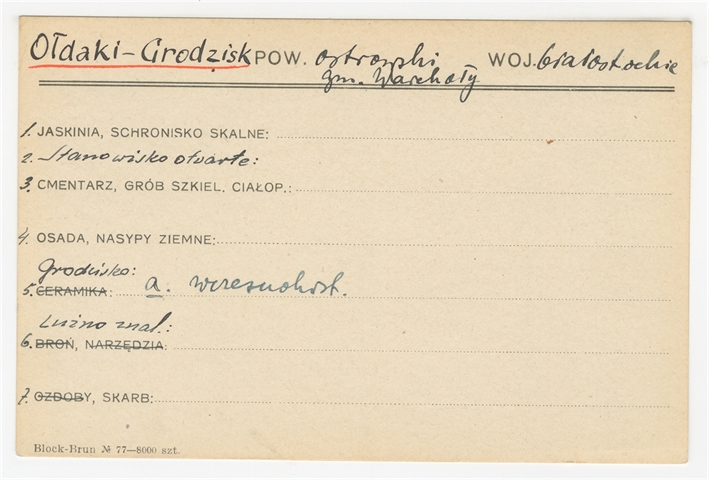 Ołdaki-Grodzisk POW. ostrowski WOJ. białostockie
gm. Warchoły
1. JASKINIA, SCHRONISKO SKALNE:
2. Stanowisko otwarte:
3. CMENTARZ, GRÓB SZKIEL. CIAŁOP.:
4. OSADA, NASYPY ZIEMNE:
Grodzisko:
5. CERAMIKA: a. wczesnohist.
Luźno znal.:
6. BROŃ, NARZĘDZIA:
7. OZDOBY, SKARB:
Block-Brun № 77—8000 szt.